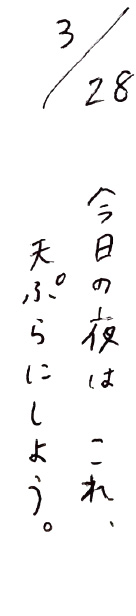 3/28
今日の夜は これ、
天ぷらにしよう。